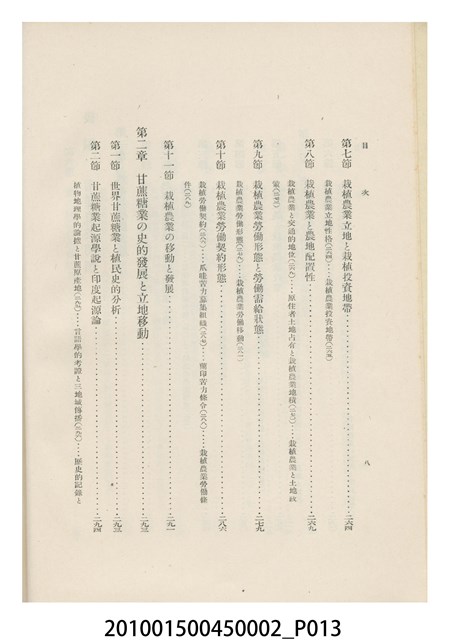 目次
八
第七節 栽植農業立地と栽植投資地帶……二六四
栽植農業立地性格(二六四)……栽植農業投資地帶(二六五)
第八節 栽植農業と農地配置性……二六九
栽植農業と交通的地位(二六九)……原住者土地占有と栽植農業地積……栽植農業と土地政
策
第九節 栽植農業勞働形態と勞働需給狀態……二七九
栽植農業勞働形態(二七九)……栽植農業勞働移動
第十節 栽植農業勞働契約形態……二八六
栽植勞働契約(二八六)……爪哇苦力募集組織(二八七)……蘭印苦力條令(二八八)……栽植農業勞働條
件(二八九)
第十一節 栽植農業の移動と發展……二九一
第二章 甘蔗糖業の史的發展と立地移動……二九三
第一節 世界甘蔗糖業と植民史的分析……二九三
第二節 甘蔗糖業起源學說と印度起源論……二九四
植物地理學的論據と甘蔗原產地……言語學的考證と三地域傳播……歷史的記錄と
201001500450002_P013